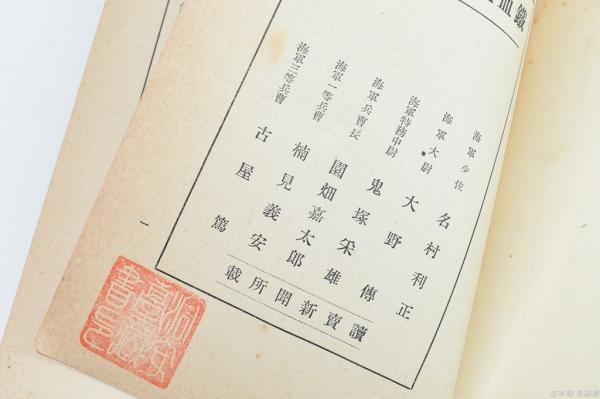 鐵血
海軍少佐 名村利正
海軍大尉 大野傳
海軍特務中尉 鬼塚栄雄
海軍兵曹長 園畑嘉太郎
海軍一等兵曹 楠見義安
海軍三等兵曹 古屋篤
讀賣新聞所載
一